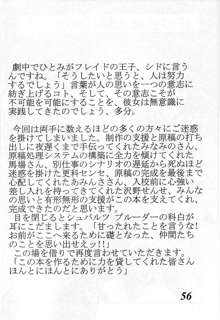 劇中でひとみがフレイドの王子、シドに言う
んですね。「そうしたいと思うと、人は努力
するでしょう」言葉が人の思いを一つの意志に
紡ぎ上げるコト、そして、その意志こそが
不可能を可能にすることを、彼女は無意識に
実践してきたのでしょう、多分。
今回は両手に数えるほどの多くの方々にご迷惑
を掛けてしまいました。制作の支援と原稿の打ち
出しに夜遅くまで手伝ってくれたみなみのさん、
原稿処理システムの構築に全力を傾けてくれた
馬場さん、別働位のシナリオの遅延から死ぬほど
迷惑を掛けた更科センセ、原稿の完成を最後まで
心配してくれたあみんさん、入校前に心地良い
差し入れを持ってきてくれた沢野せんせ、みんな
の思いと有形無形の支援がこの本を支えてくれ、
完成できたのだと思います。
目を閉じるとシュバルツ ブルーダーの科白が
耳にこだまします。「甘ったれたことを言うな!
お前がここまで来るために礎となった、仲間たち
のことを思い出せえっ!!」
この場を借りて再度言わせていただきます。
「この本を作るために力を貸してくれた皆さん
ほんとにほんとにありがとう」
56